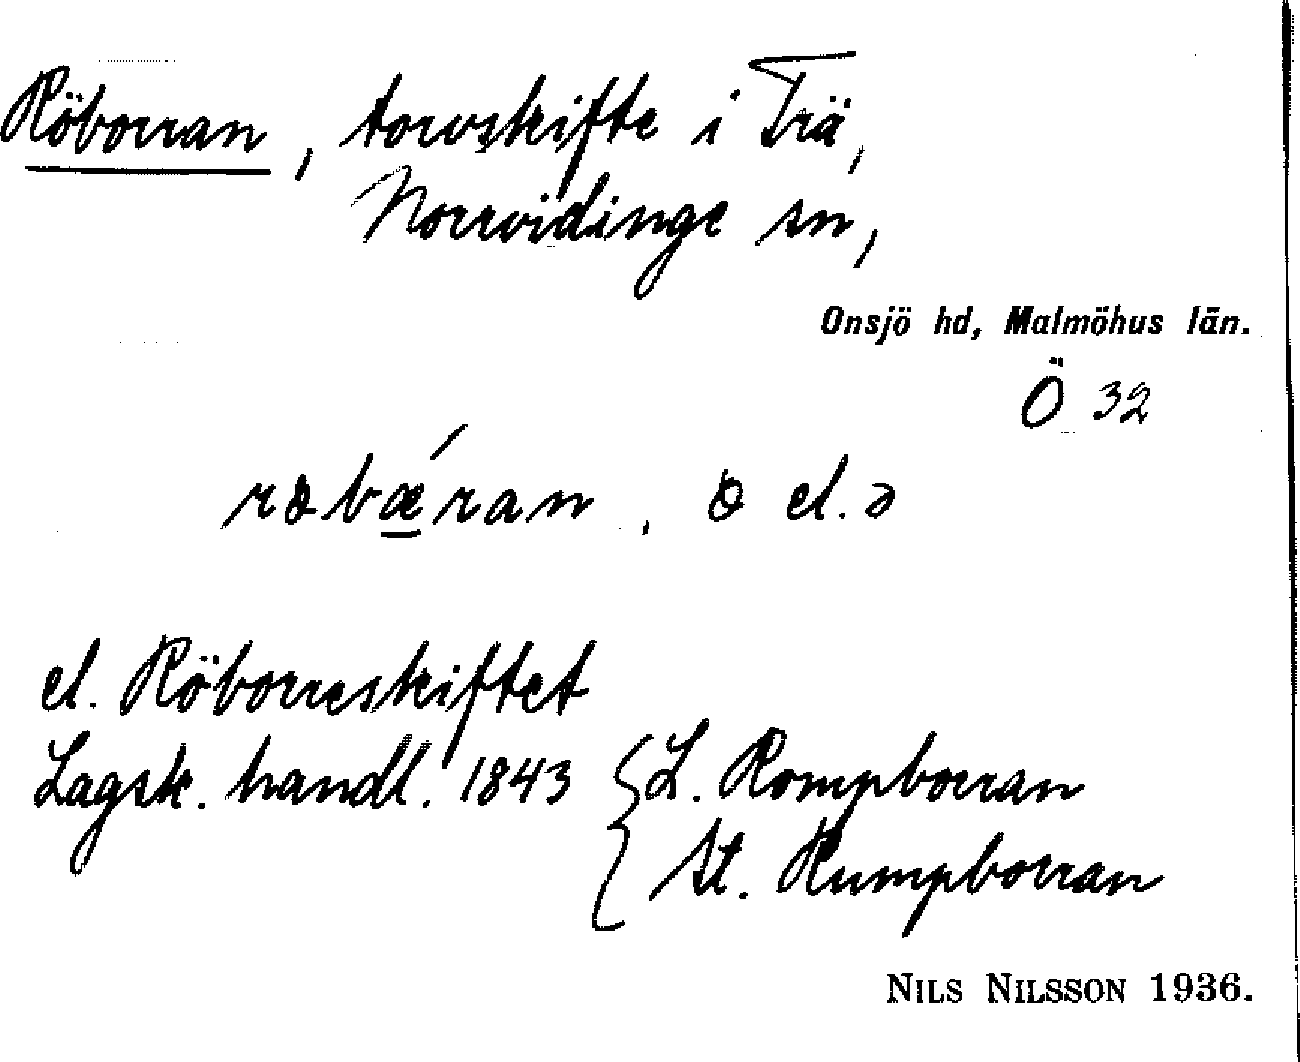 Röborran, torvskifte i Trä,
Norrvidinge sn,
Onsjö hd, Malmöhus län.
Ö 32
rɵbǽran, ɵ el. ə
el. Röborreskiftet
Lagsk. handl. 1843 { L. Rompborran
St. Rumpborran
NILS NILSSON 1936.